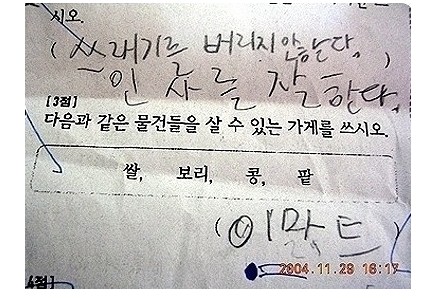 시오.
(쓰래기를 버리지 않는다.
인사를 잘한다.
[3점]
다음과 같은 물건들을 살 수 있는 가게를 쓰시오.
쌀, 보리, 콩, 팥
(이마트)
2004.11.29 16:17
4점]